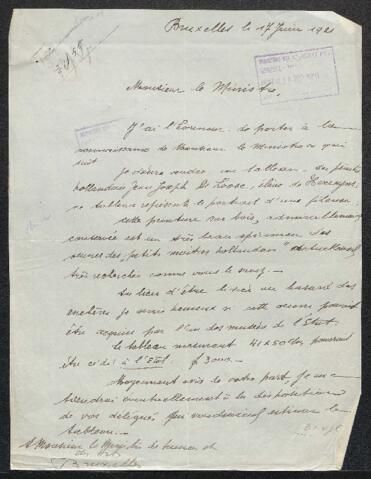 Bruxelles le 17 Juin 1921
Monsieur le Ministre,
J'ai l'honneur de porter à la
connaissance de Monsieur le Ministre ce qui
suit
Je désire vendre un tableau du peintre
hollandais Jean Joseph De Loose, élève de
ce tableau représente le portrait d'une fileuse.
cette peinture sur bois, admirablement
conservée est un très beau spécimen des
œuvres des "petits maîtres hollandais" actuellement
très recherchés comme vous le savez.
Au lieu d'être livrée au hasard des
enchères je serais heureux si cette œuvre pouvait
être acquise par l'un des musées de l'État.
Le tableau mesurant 41 x 50 pourrait
être cédé à l'État. 3000.
Moyennant avis de votre part, je me
tiendrai éventuellement à la disposition
de vos délégués qui voudraient estimer le
tableau.
A Monsieur le Ministre des Sciences et
des Arts
Bruxelles